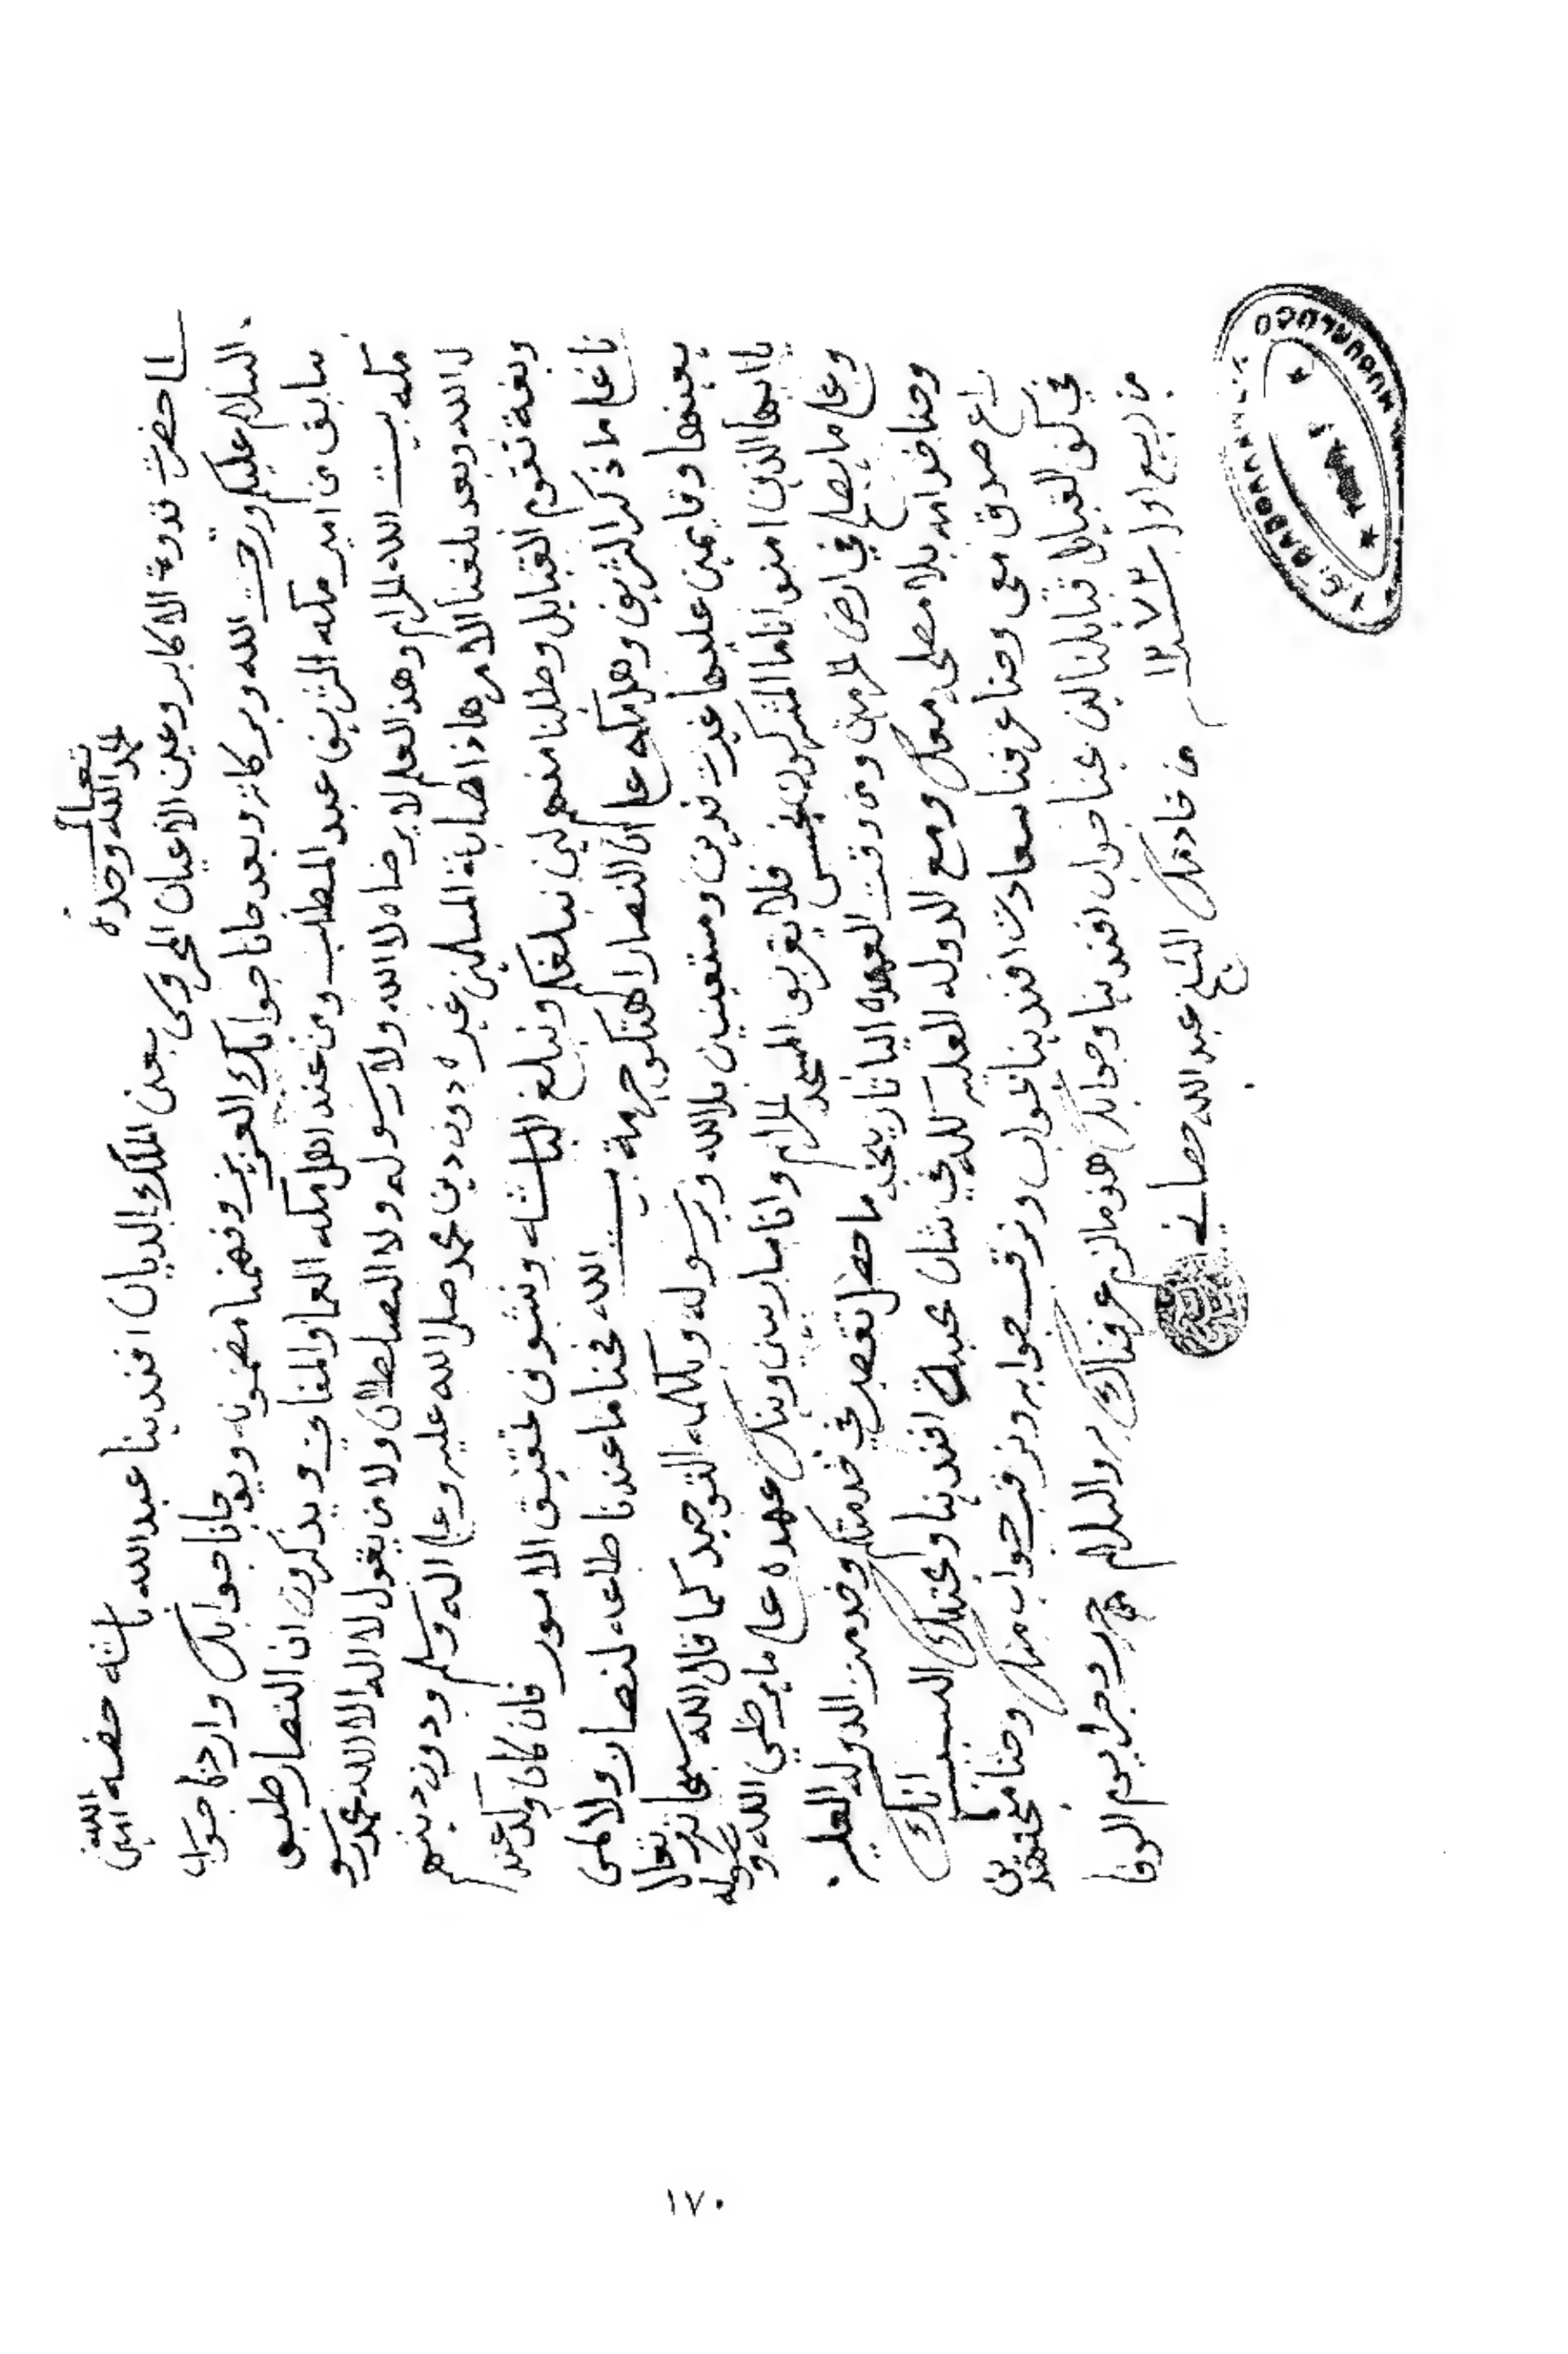 الحمد لله وحده
تعالى
الى حضرت قدوة الاكابر وعين الاعيان المحروس بعين الملك الديان افندينا عبدالله باشه حفضه الله امين
السلام عليكم ورحمت الله وبركاته وبعد جانا جوابك العزيز وفهمنا مضمونه ويوم جانا جوابك واردنا جواب
سابق من امير مكه الشريف عبد المطلب ومن عند اهل مكه العلما والمفاتي ويذكرون ان النصار طبو
مكه بيت الله الحرام وهذ العلم لا يرضاه لا الله ولا رسوله ولا السلطان ولا من يقول لا اله الا الله محمد رسو
ل الله وبعد بلغنا الامر هاذا اصابة المسلمين غيره دون دين محمد صلى الله عليه وعلى اله وسلم ودون دينهم
وبغة تقوم القبايل وطلبنا منهم لين نبلغكم ونبلغ الباشه ونشوف تحقيق الامور فان كان وكد عند
نا على ما ذكر الشريف وهل مكه على ان النصارا هتكو حرمة بيت الله فحنا ما عندنا طاعه لنصار ولا لمن
يعينها وقايمين عليها غيرت لدين ومستعينين بالله وبرسوله وبكلمه التوحيد كما قال الله سبحانه وتعالا
ياايها الذين امنو انما المشركون نجس فلا يقربو المسجد الحرام وانا صار بيني وبينك عهده على ما يرضي الله ورسوله
وعلى ما يصلح في ارض الحرمين ومن وقت العهده اليا تاريخه ما حصل تقصير في خدمتكم وخدمت الدوله العليه
وحنا خدامه بلا مصلحي معك ومع الدوله العليه كله في شان محبت افندينا ومحبتك السبب انك
راع صدق معي وحنا عرفنا سعادت افندينا بجواب ونرقب جوابه ونرقب جواب منك وحنا مجتهدين
في كف القبايل قبايلنا لين عنا جواب افندينا وجوابك هذ مالزم عرفناك به والسلام حرر وجرا يوم الوفا
من ربيع اول سنه ١٢٧٢ من خادمك الشيخ عبدالله حصاني
١٧٠